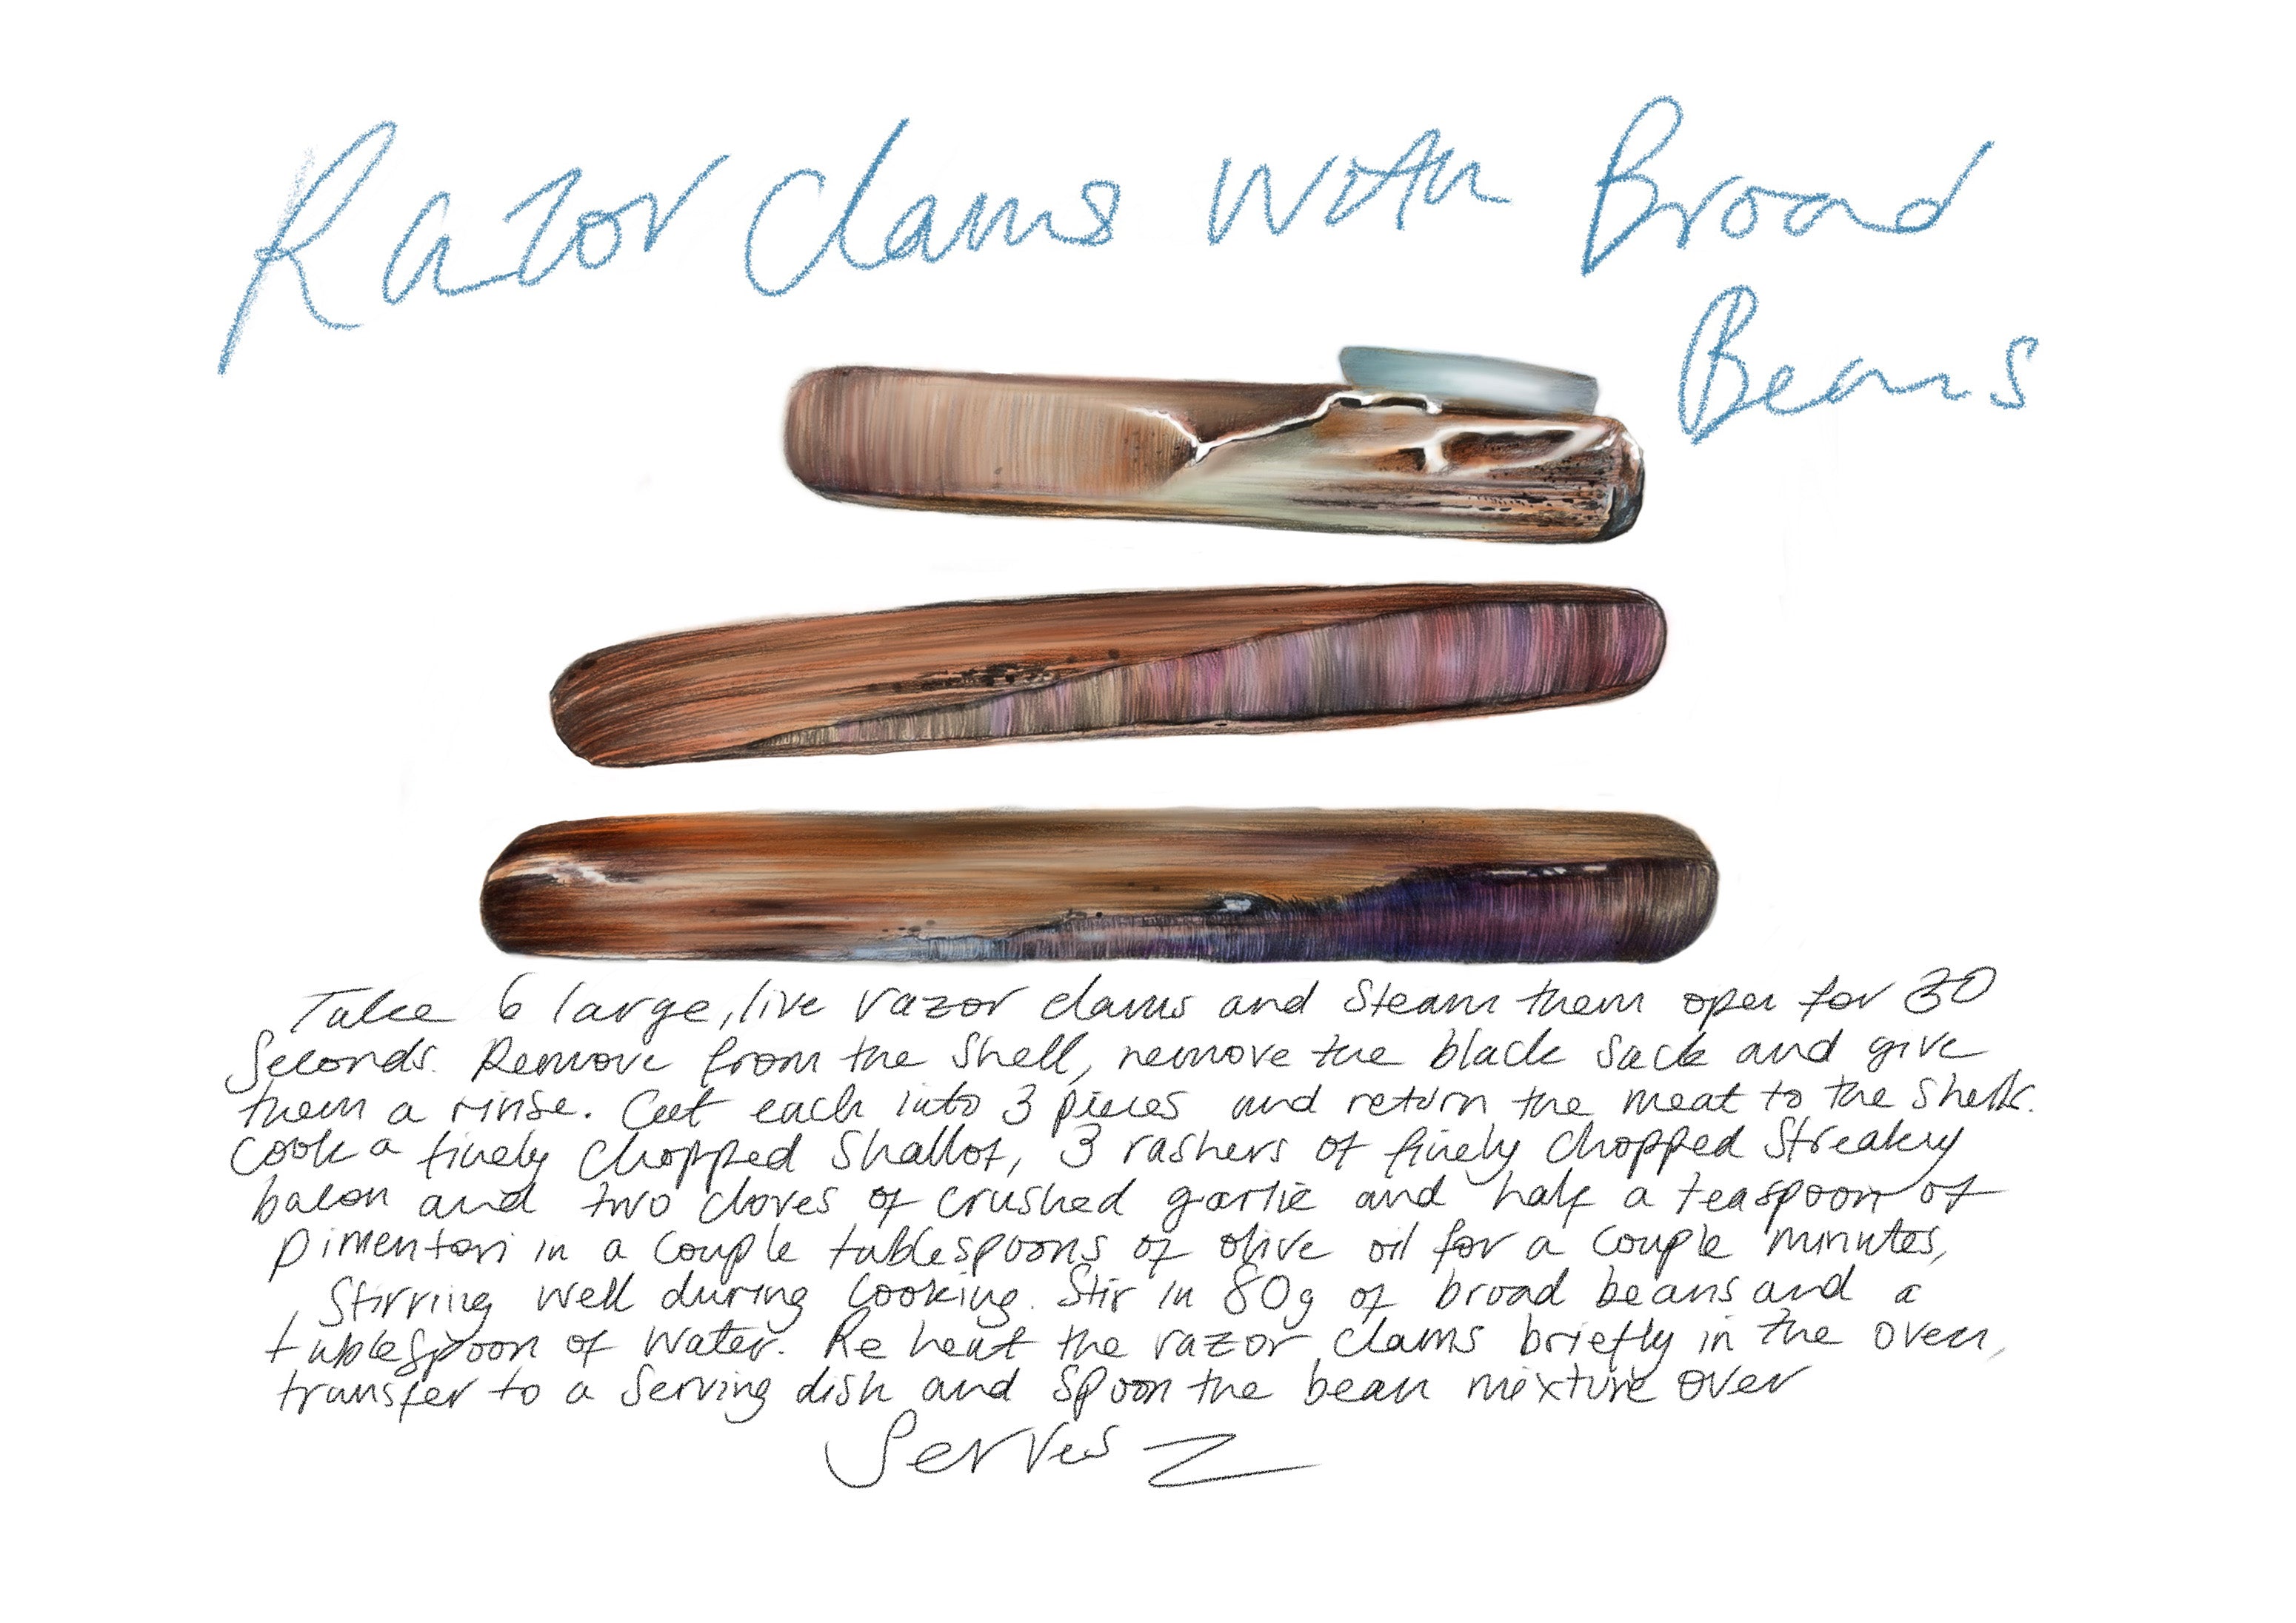 Razor Clams with Broad
Beans
Take 6 large, live razor clams and steam them open for 30
Seconds. Remove from the shell, remove the black sack and give
them a rinse. Cut each into 3 pieces and return the meat to the shells.
Cook a finely chopped shallot, 3 rashers of finely chopped streaky
bacon and two cloves of crushed garlic and half a teaspoon of
pimenton in a couple tablespoons of olive oil for a couple minutes,
stirring well during cooking. Stir in 80g of broad beans and a
tablespoon of water. Re heat the razor clams briefly in the oven,
transfer to a serving dish and spoon the bean mixture over
Serves 2